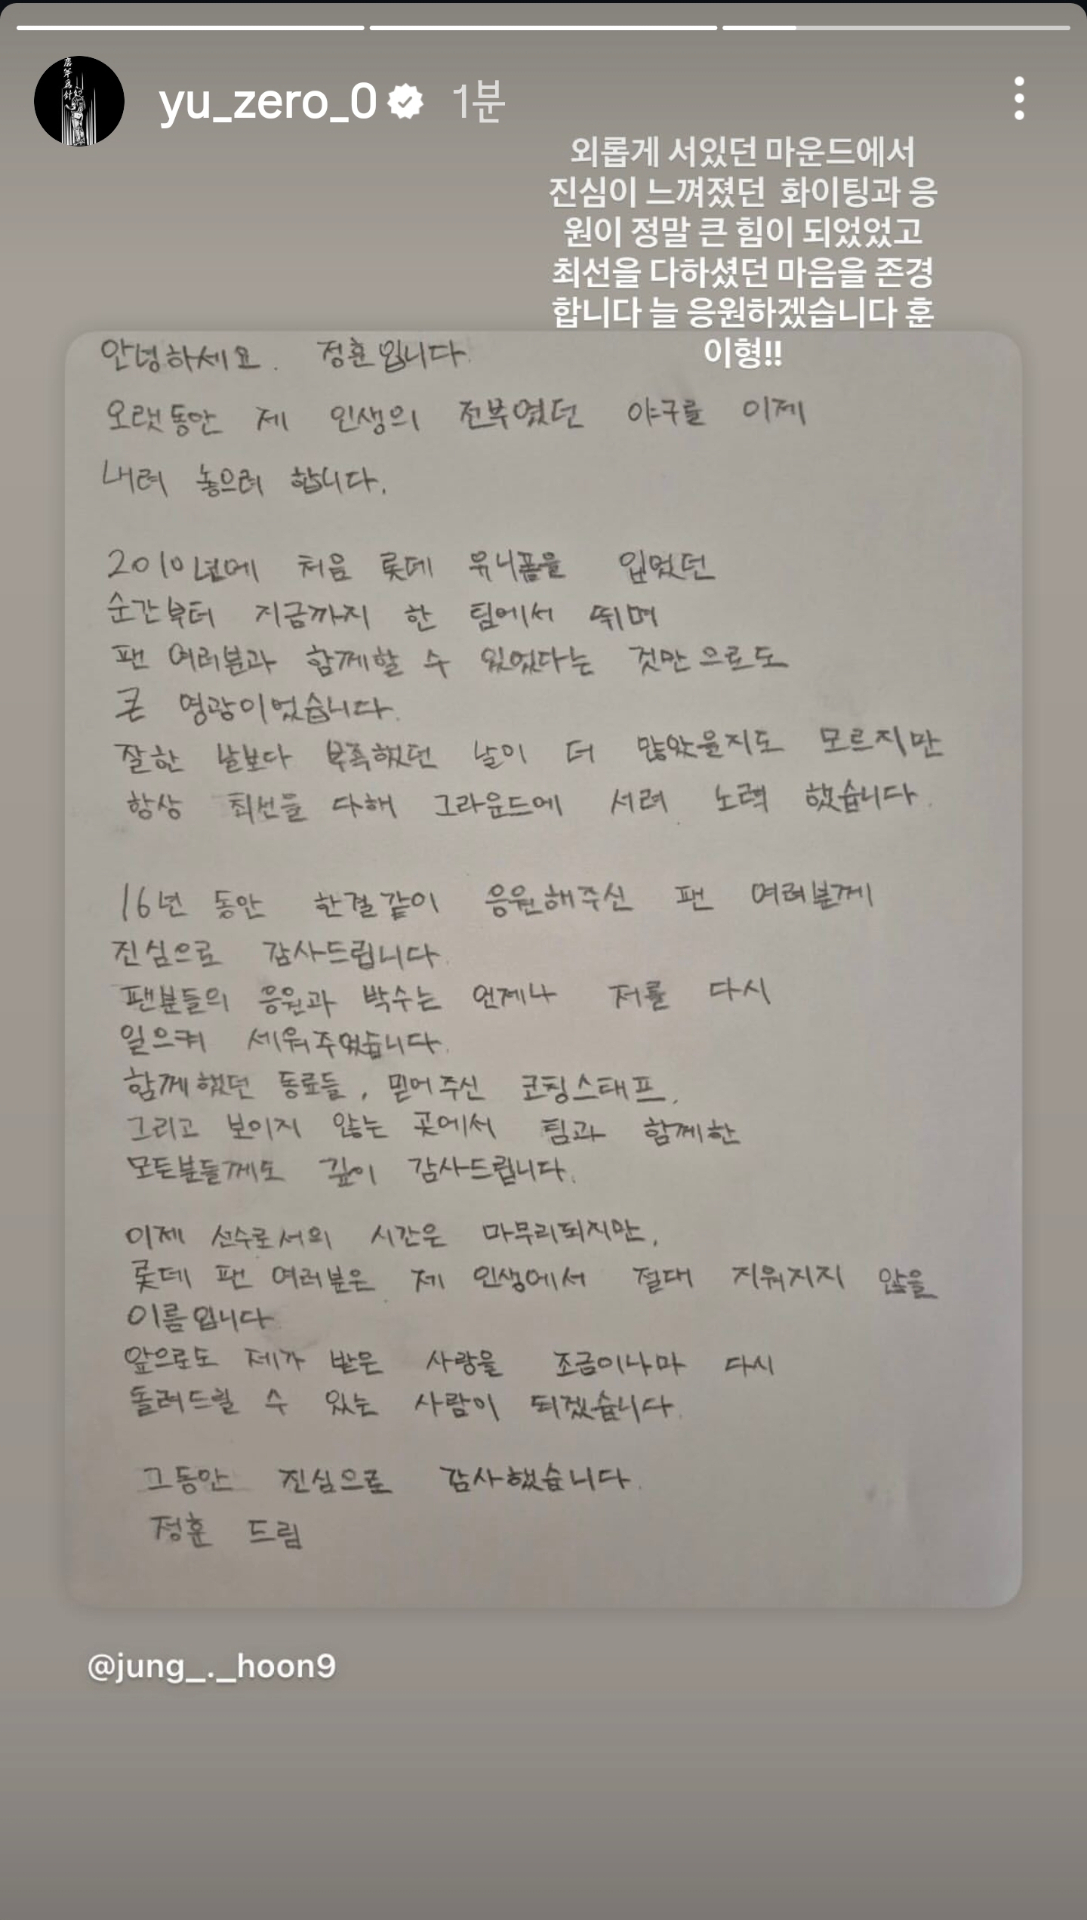 yu_zero_0 1분
외롭게 서있던 마운드에서
진심이 느껴졌던 화이팅과 응
원이 정말 큰 힘이 되었었고
최선을 다하셨던 마음을 존경
합니다 늘 응원하겠습니다 훈
이형!!
안녕하세요. 정훈입니다.
오랫동안 제 인생의 전부였던 야구를 이제
내려 놓으려 합니다.
2010년에 처음 롯데 유니폼을 입었던
순간부터 지금까지 한 팀에서 뛰며
팬 여러분과 함께할 수 있었다는 것만으로도
큰 영광이었습니다.
잘한 날보다 부족했던 날이 더 많았을지도 모르지만
항상 최선을 다해 그라운드에 서려 노력 했습니다.
16년 동안 한결같이 응원해주신 팬 여러분께
진심으로 감사드립니다.
팬분들의 응원과 박수는 언제나 저를 다시
일으켜 세워주었습니다.
함께했던 동료들, 믿어주신 코칭스태프,
그리고 보이지 않는 곳에서 팀과 함께한
모든분들께도 깊이 감사드립니다.
이제 선수로서의 시간은 마무리되지만,
롯데 팬 여러분은 제 인생에서 절대 지워지지 않을
이름입니다
앞으로도 제가 받은 사랑을 조금이나마 다시
돌려드릴 수 있는 사람이 되겠습니다.
그동안 진심으로 감사했습니다.
정훈 드림
@jung_._hoon9